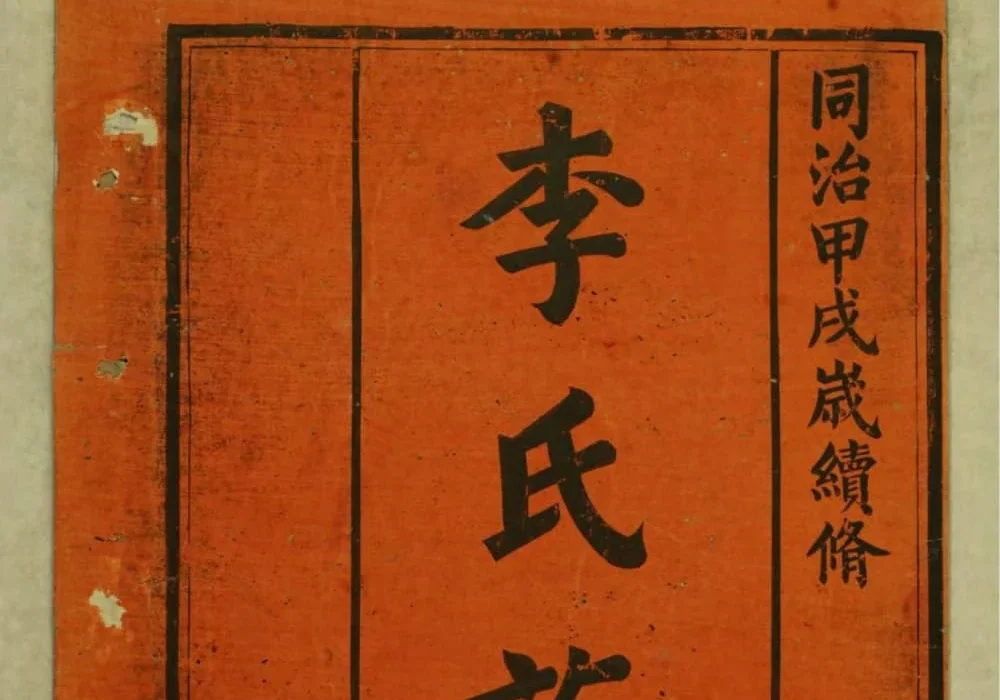 同治甲戌歲續脩
李氏